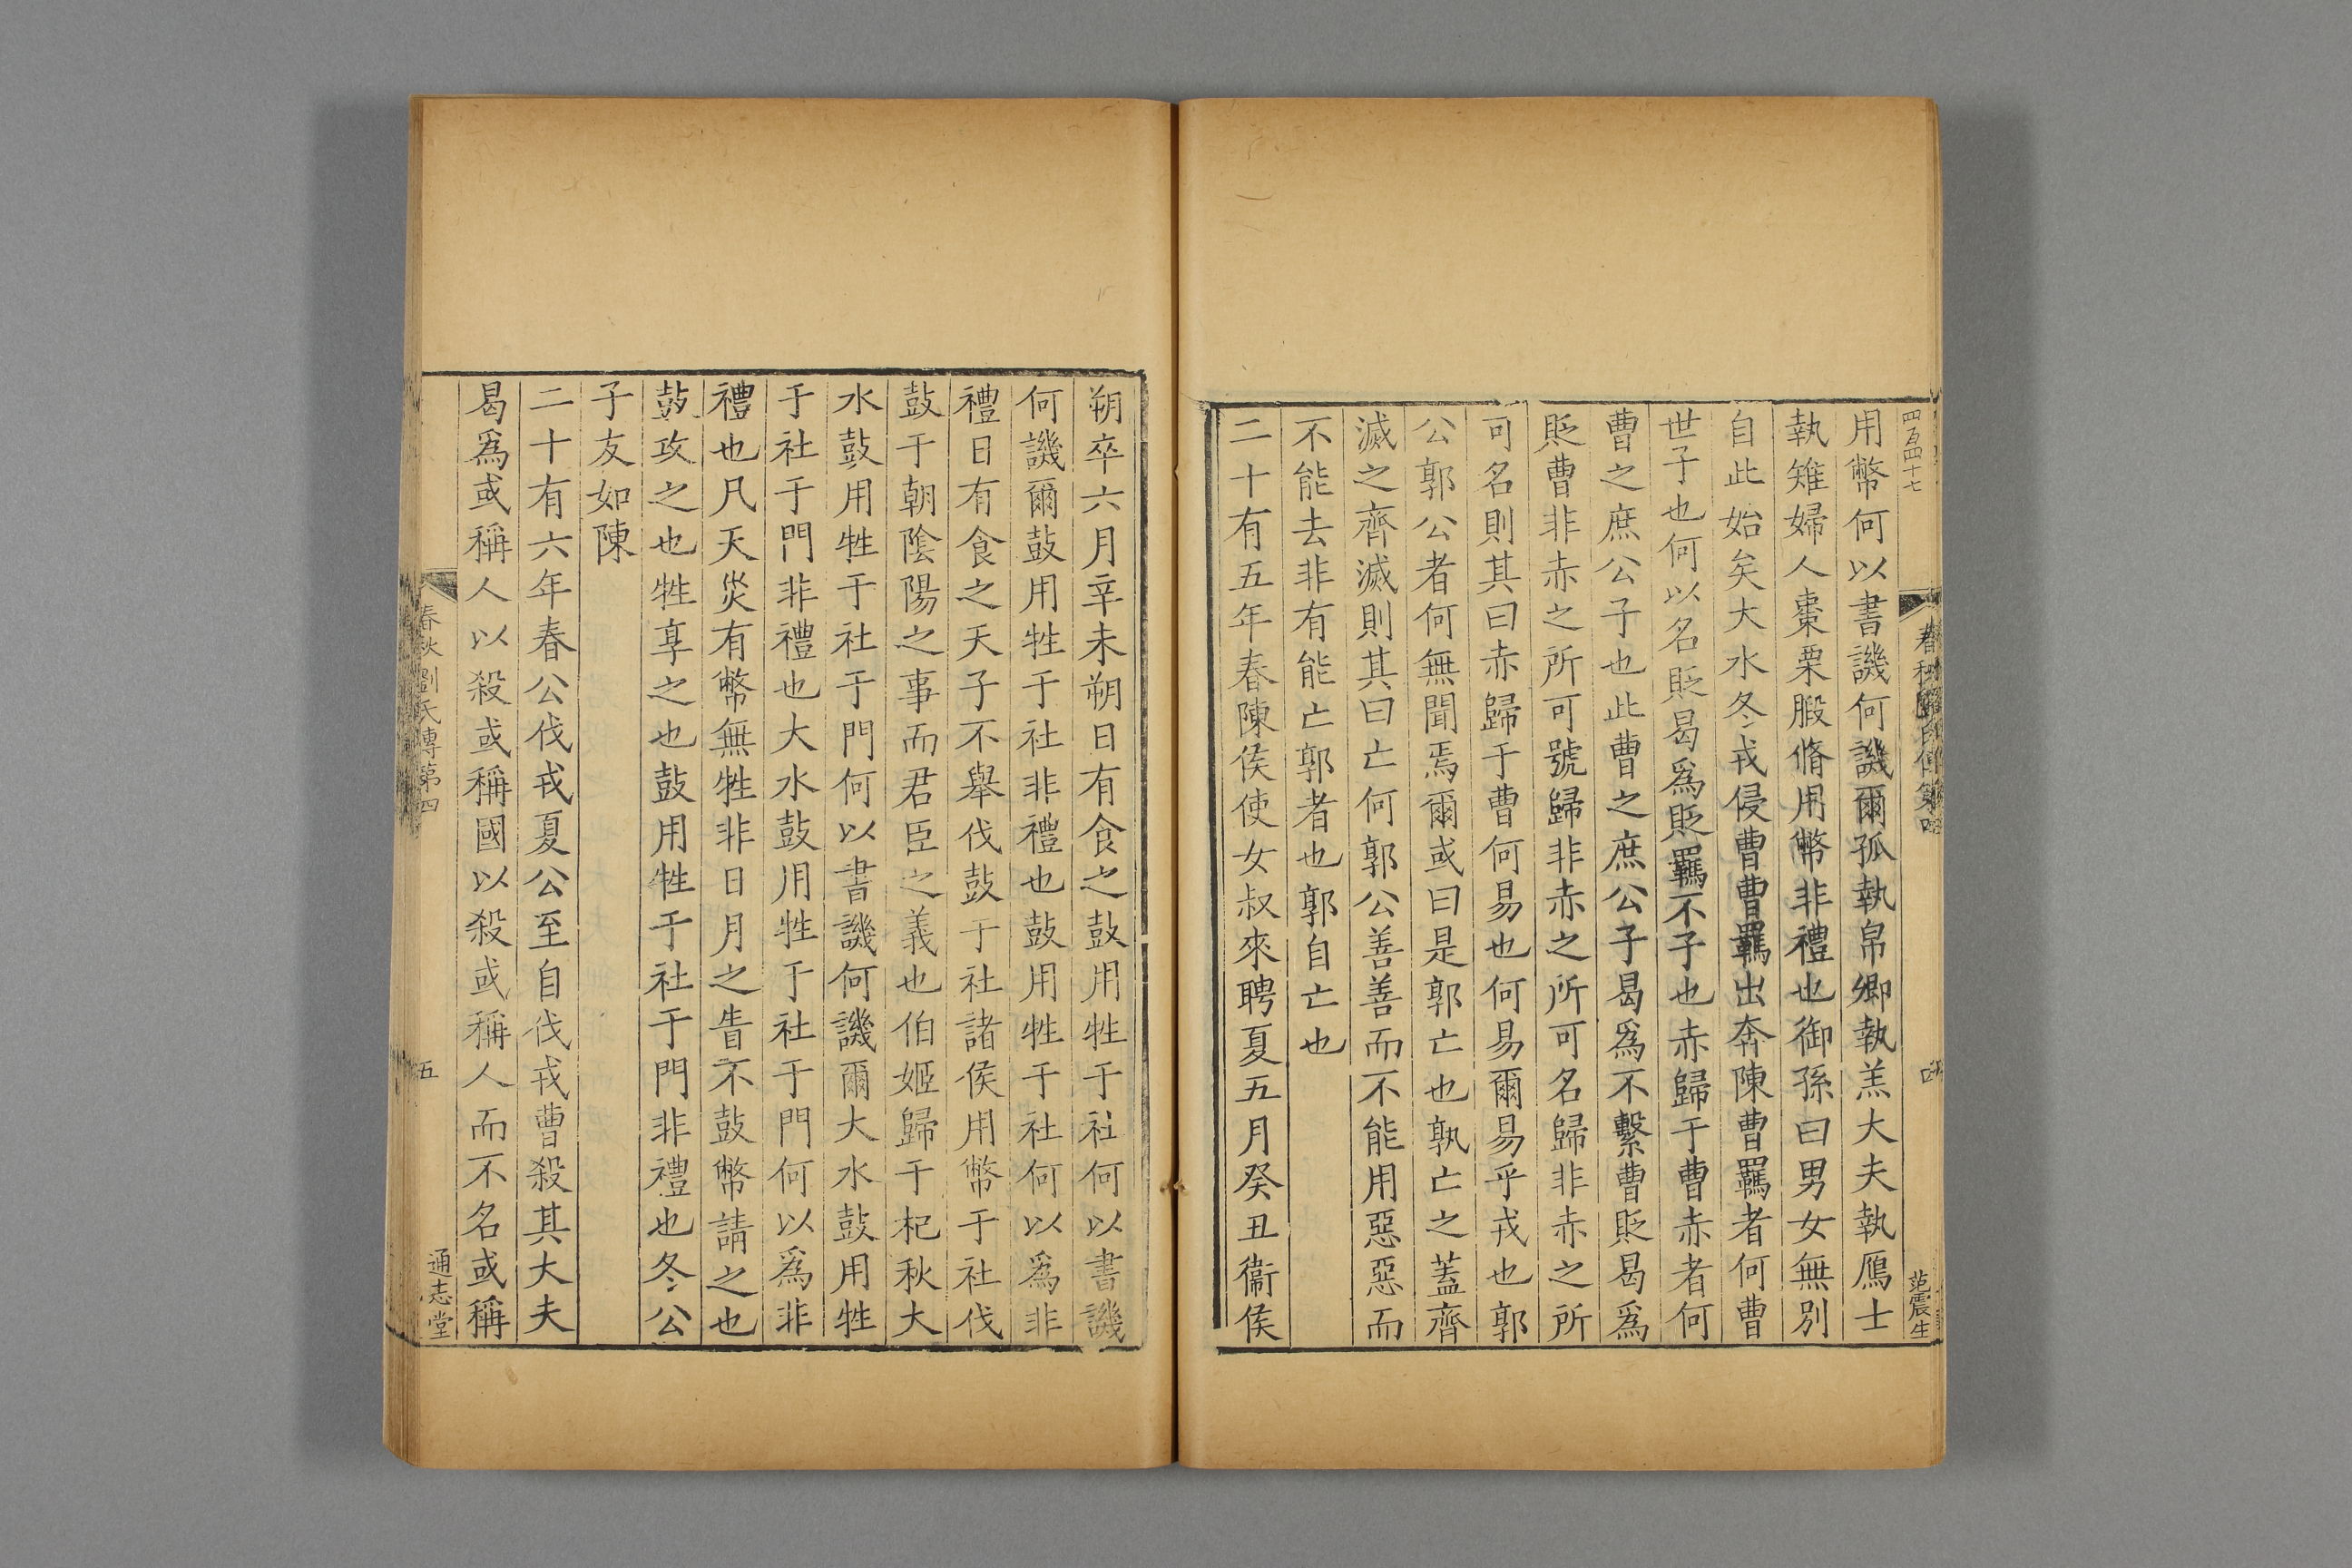 四百四十七
春秋劉氏傳第四
四
范震生
用幣何以書譏何譏爾孤執帛卿執羔大夫執鴈士
執雉婦人棗栗腶脩用幣非禮也御孫曰男女無別
自此始矣大水冬戎侵曹曹羈出奔陳曹羈者何曹
世子也何以名貶曷爲貶羈不子也赤歸于曹赤者何
曹之庶公子也此曹之庶公子曷爲不繫曹貶曷爲
貶曹非赤之所可號歸非赤之所可名歸非赤之所
可名則其曰赤歸于曹何易也何易爾易乎戎也郭
公郭公者何無聞焉爾或曰是郭亡也孰亡之蓋齊
滅之齊滅則其曰亡何郭公善善而不能用惡惡而
不能去非有能亡郭者也郭自亡也
二十有五年春陳侯使女叔來聘夏五月癸丑衞侯
朔卒六月辛未朔日有食之鼓用牲于社何以書譏
何譏爾鼓用牲于社非禮也鼓用牲于社何以爲非
禮日有食之天子不舉伐鼓于社諸侯用幣于社伐
鼓于朝陰陽之事而君臣之義也伯姬歸于杞秋大
水鼓用牲于社于門何以書譏何譏爾大水鼓用牲
于社于門非禮也大水鼓用牲于社于門何以爲非
禮也凡天災有幣無牲非日月之眚不鼓幣請之也
鼓攻之也牲享之也鼓用牲于社于門非禮也冬公
子友如陳
二十有六年春公伐戎夏公至自伐戎曹殺其大夫
曷爲或稱人以殺或稱國以殺或稱人而不名或稱
春秋劉氏傳第四
五
通志堂